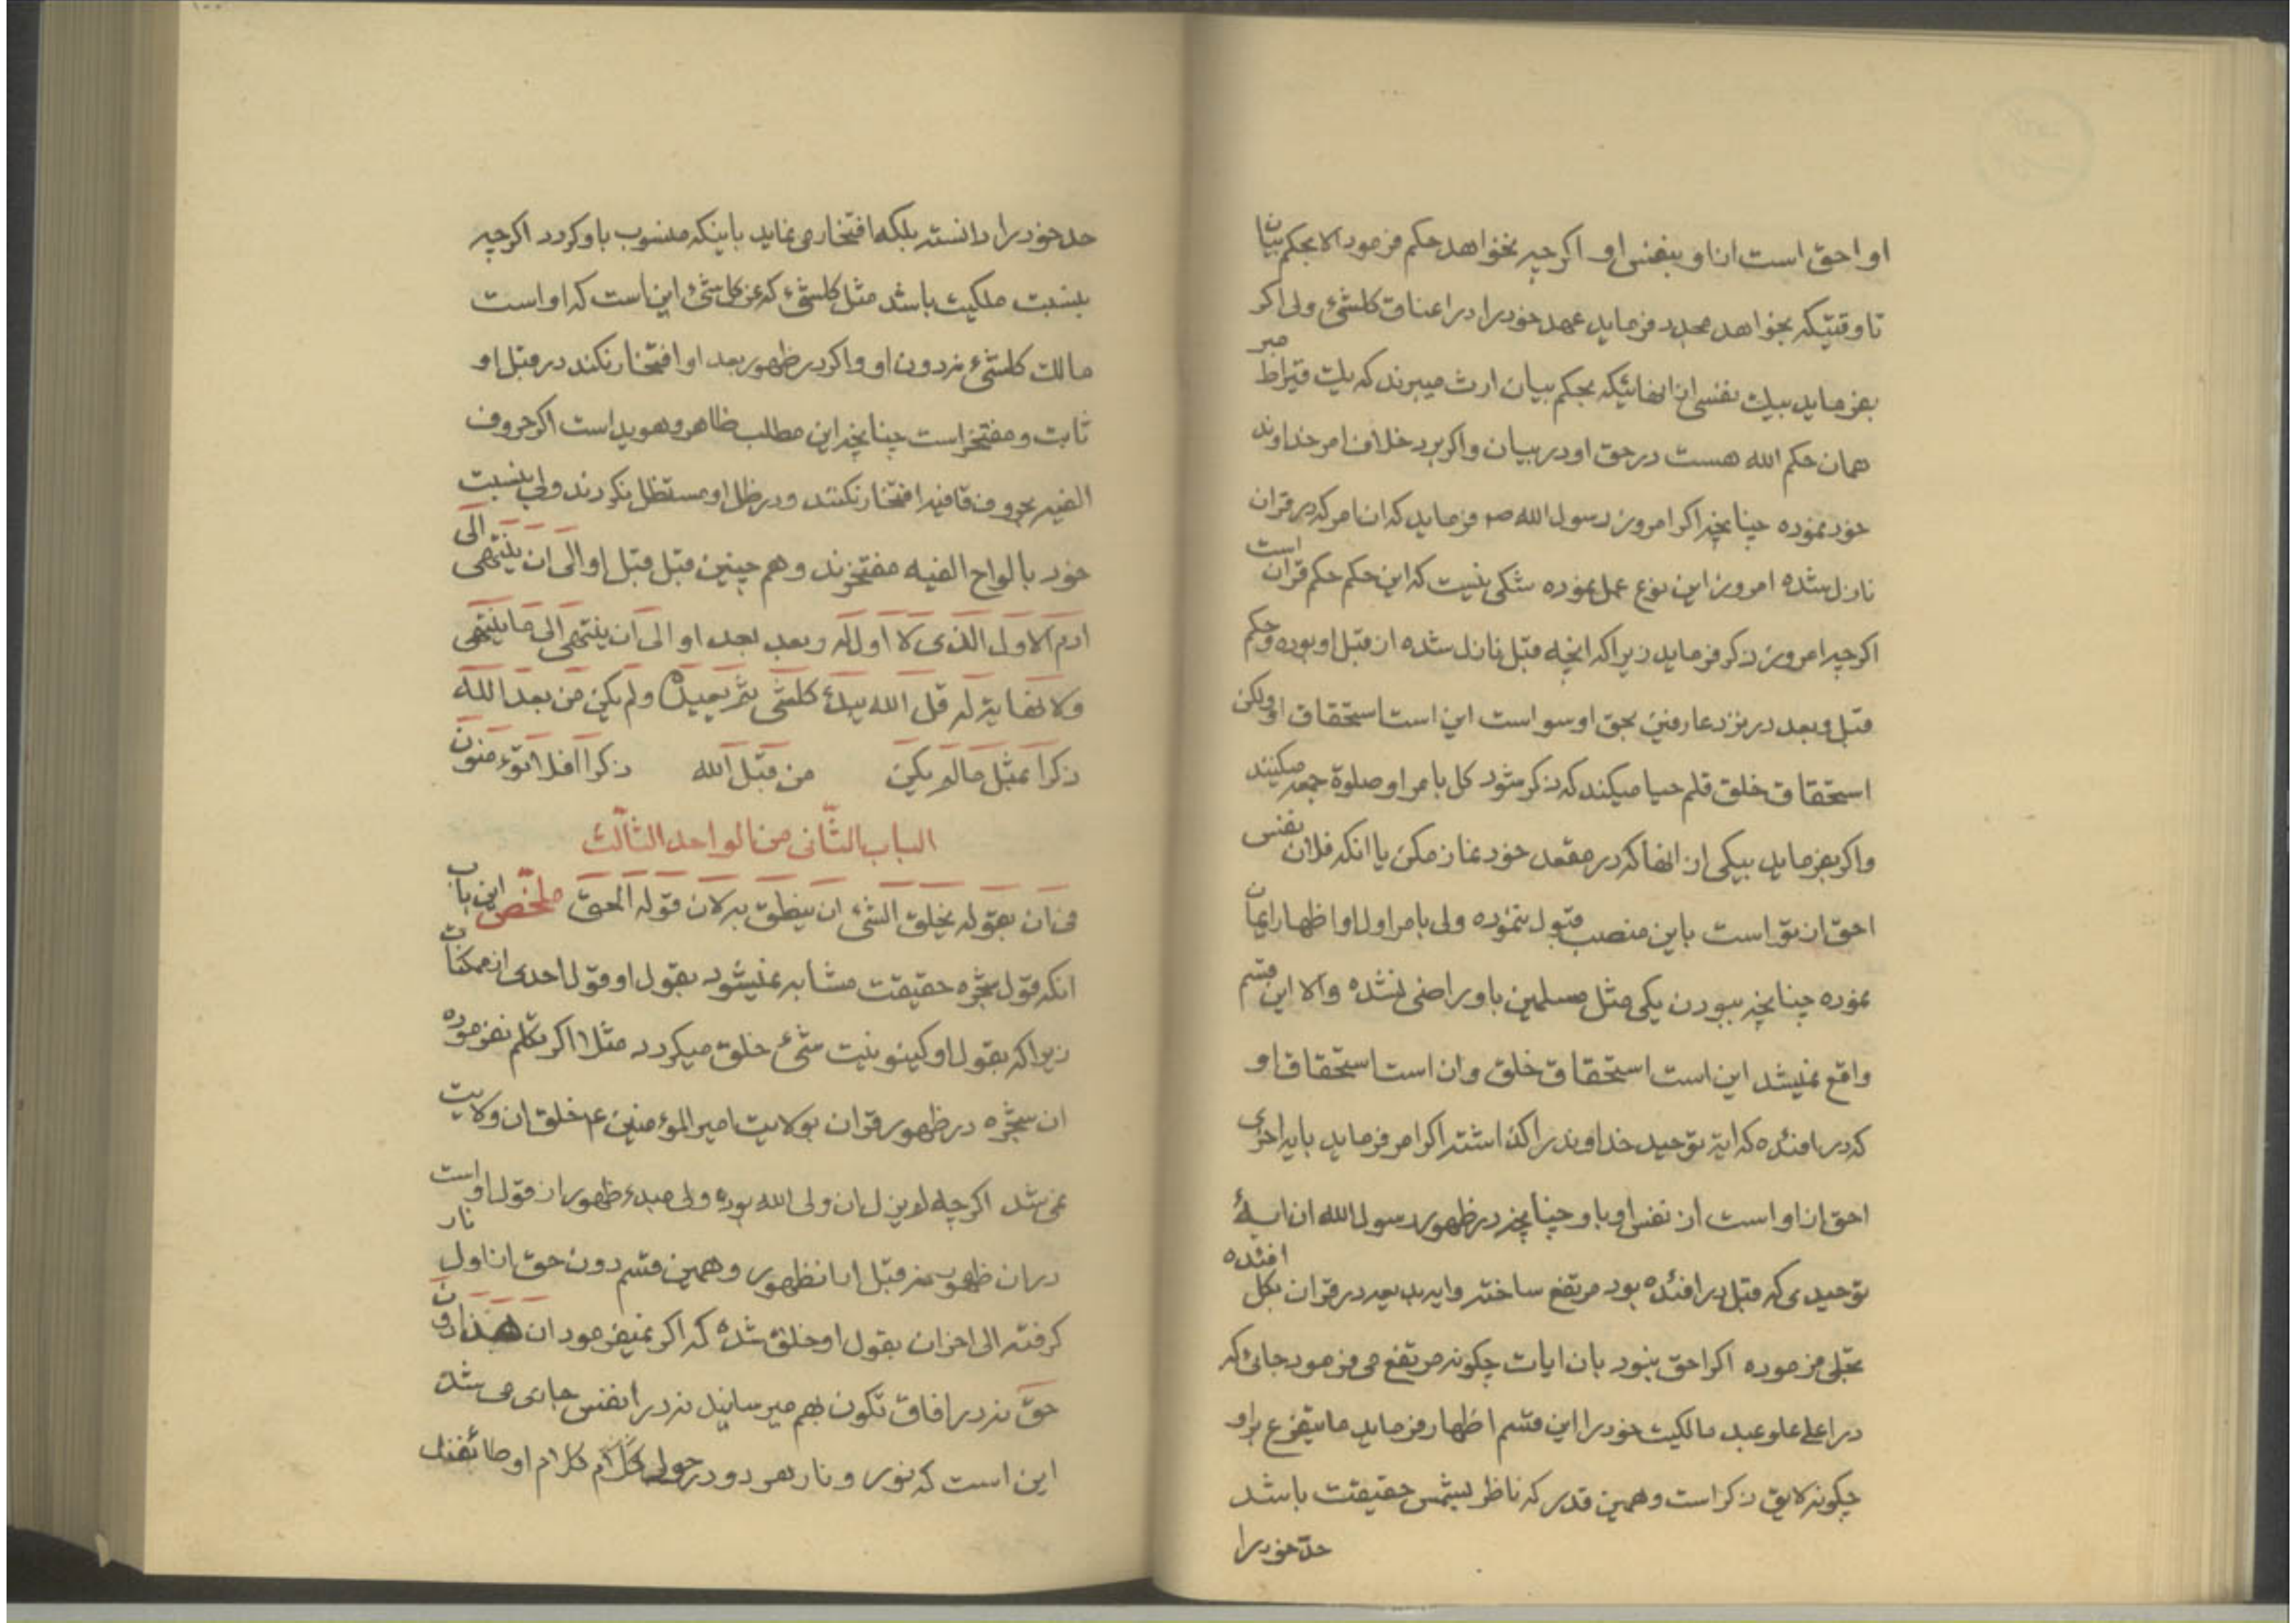 او احق است از او بنفس او اکرچه نخواهد حکم فرمود الا بحکم بیان
تا وقتیکه بخواهد مجدد فرماید عهد خود را در اعناق کلشیء ولی اکر
بفرماید بیک نفسی از انهائیکه بحکم بیان ارث میبرند که یک قیراط مبر
همان حکم الله هست در حق او در بیان و اکر برد خلاف امر خداوند
خود نموده چنانچه اکر امروز رسول الله صم فرماید که ان امر که در قران
نازل شده امروز این نوع عمل نموده شکی نیست که این حکم حکم قران است
اکرچه امروز ذکر فرماید زیراکه انچه قبل نازل شده از قبل او بوده و حکم
قبل و بعد در نزد عارفین بحق او سواست این است استحقاق او ولکن
استحقاق خلق قلم حیا میکند که ذکر شود کل بامر او صلوة جمعه میکنند
و اکر بفرماید بیکی از انها که در مقعد خود نماز مکن یا انکه فلان نفس
احق از تو است باین منصب قبول ننموده ولی بامر اول او اظهار ایمان
نموده چنانچه ببودن یکی مثل مسلمین باو راضی نشده و الا این قسم
واقع نمیشد این است استحقاق خلق و ان است استحقاق او
که در افئده که ایة توحید خداوند را کذاشته اکر امر فرماید بایه اخری
احق از او است از نفس او باو چنانچه در ظهور رسول الله ان ایهٔ
توحیدی که قبل در افئده بود مرتفع ساخته و ایه بدیعه در قران بکل افئده
تجلی فرموده اکر احق نبود بان ایات چکونه مرتفع می فرمود جائی که
در اعلی علو عبد مالکیت خود را این قسم اظهار فرماید ما یتفرع بر او
چکونه لایق ذکر است و همین قدر که ناظر بشمس حقیقت باشد
حد خود را
حد خود را دانسته بلکه افتخار می نماید باینکه منسوب باو کردد اکرچه
بنسبت ملکیت باشد مثل کلشیء که عز کلشیء این است که او است
مالک کلشیء نه دون او و اکر در ظهور بعد او افتخار نکند در قبل او
ثابت و مفتخر است چنانچه این مطلب ظاهر و هویداست اکر حروف
الفیه بحروف قافیه افتخار نکنند و در ظل او مستظل نکردند ولی بنسبت
خود بالواح الفیه مفتخرند و هم چنین قبل قبل او الی ان ینتهی الی
ادم الاول الذی لا اول له و بعد بعد او الی ان ینتهی الی ما ینتهی
ولا نهایة له قل الله یبدء کلشی ثم یعیده و لم یکن من بعد الله
ذکرا بمثل ما لم یکن من قبل الله ذکرا افلا تؤمنون
الباب الثانی من الواحد الثالث
فی ان بقوله یخلق الشیء ان ینطق به لان قوله الحق ملخص این باب
انکه قول شجره حقیقت مشابه نمیشود بقول او قول احدی از ممکنات
زیراکه بقول او کینونیت شیء خلق میکردد مثلا اکر تکلم نفرموده
ان شجره در ظهور قران بولایت امیر المؤمنین ع م خلق ان ولایت
نمی شد اکرچه لم یزل ان ولی الله بوده ولی مبدء ظهور از قول او است
در ان ظهور نه قبل از ان ظهور و همین قسم دون حق از اول نار
کرفته الی اخر ان بقول او خلق شده که اکر نمیفرمود ان هذا دون
حق نه در افاق تکون بهم میرسانید نه در انفس جاری می شد
این است که نور و نار هر دو در حول کلام او طائفند